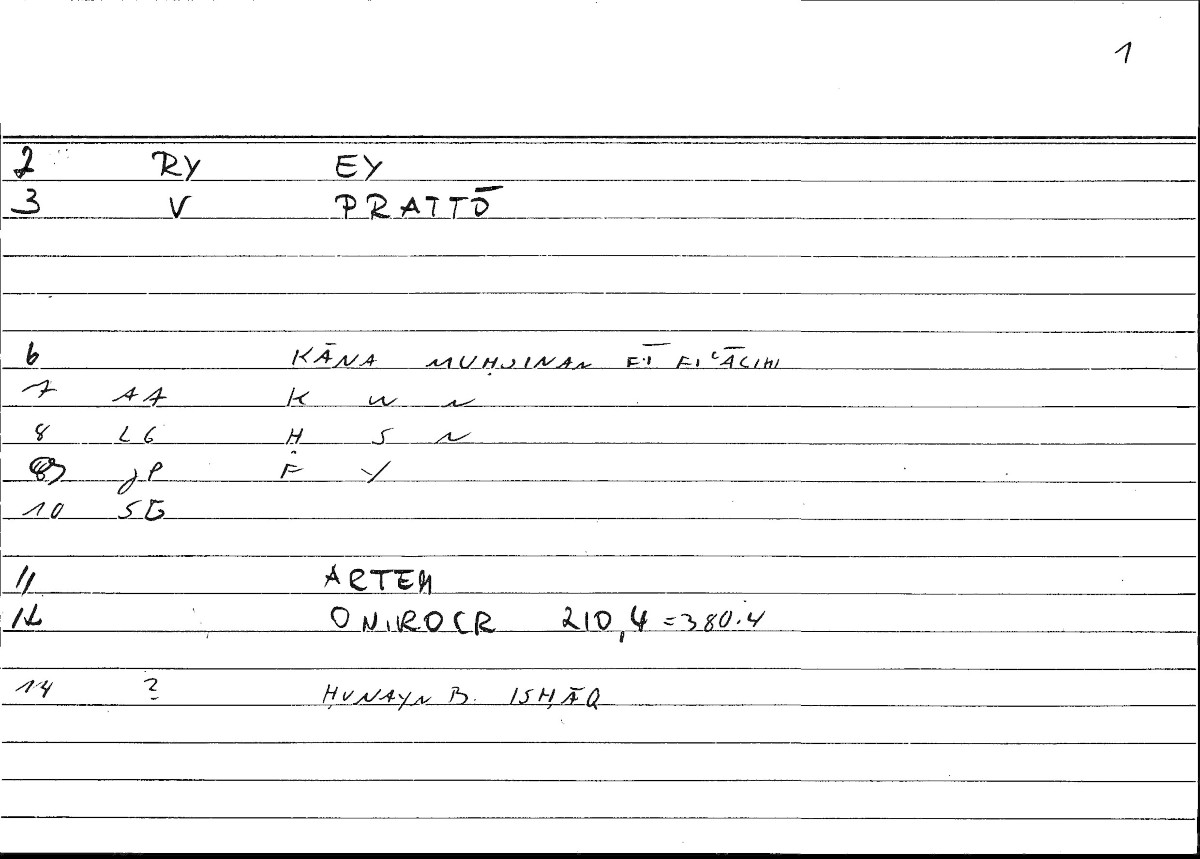 1
2 RY EY
3 V PRATTŌ
6 KĀNA MUḤSINAN FĪ FIʿĀLIHI
7 AA K W N
8 LG Ḥ S N
9 JP F Y
10 SG
11 ARTEM
12 ONIROCR 210,4 =380.4
14 ? ḤUNAYN B. ISḤĀQ